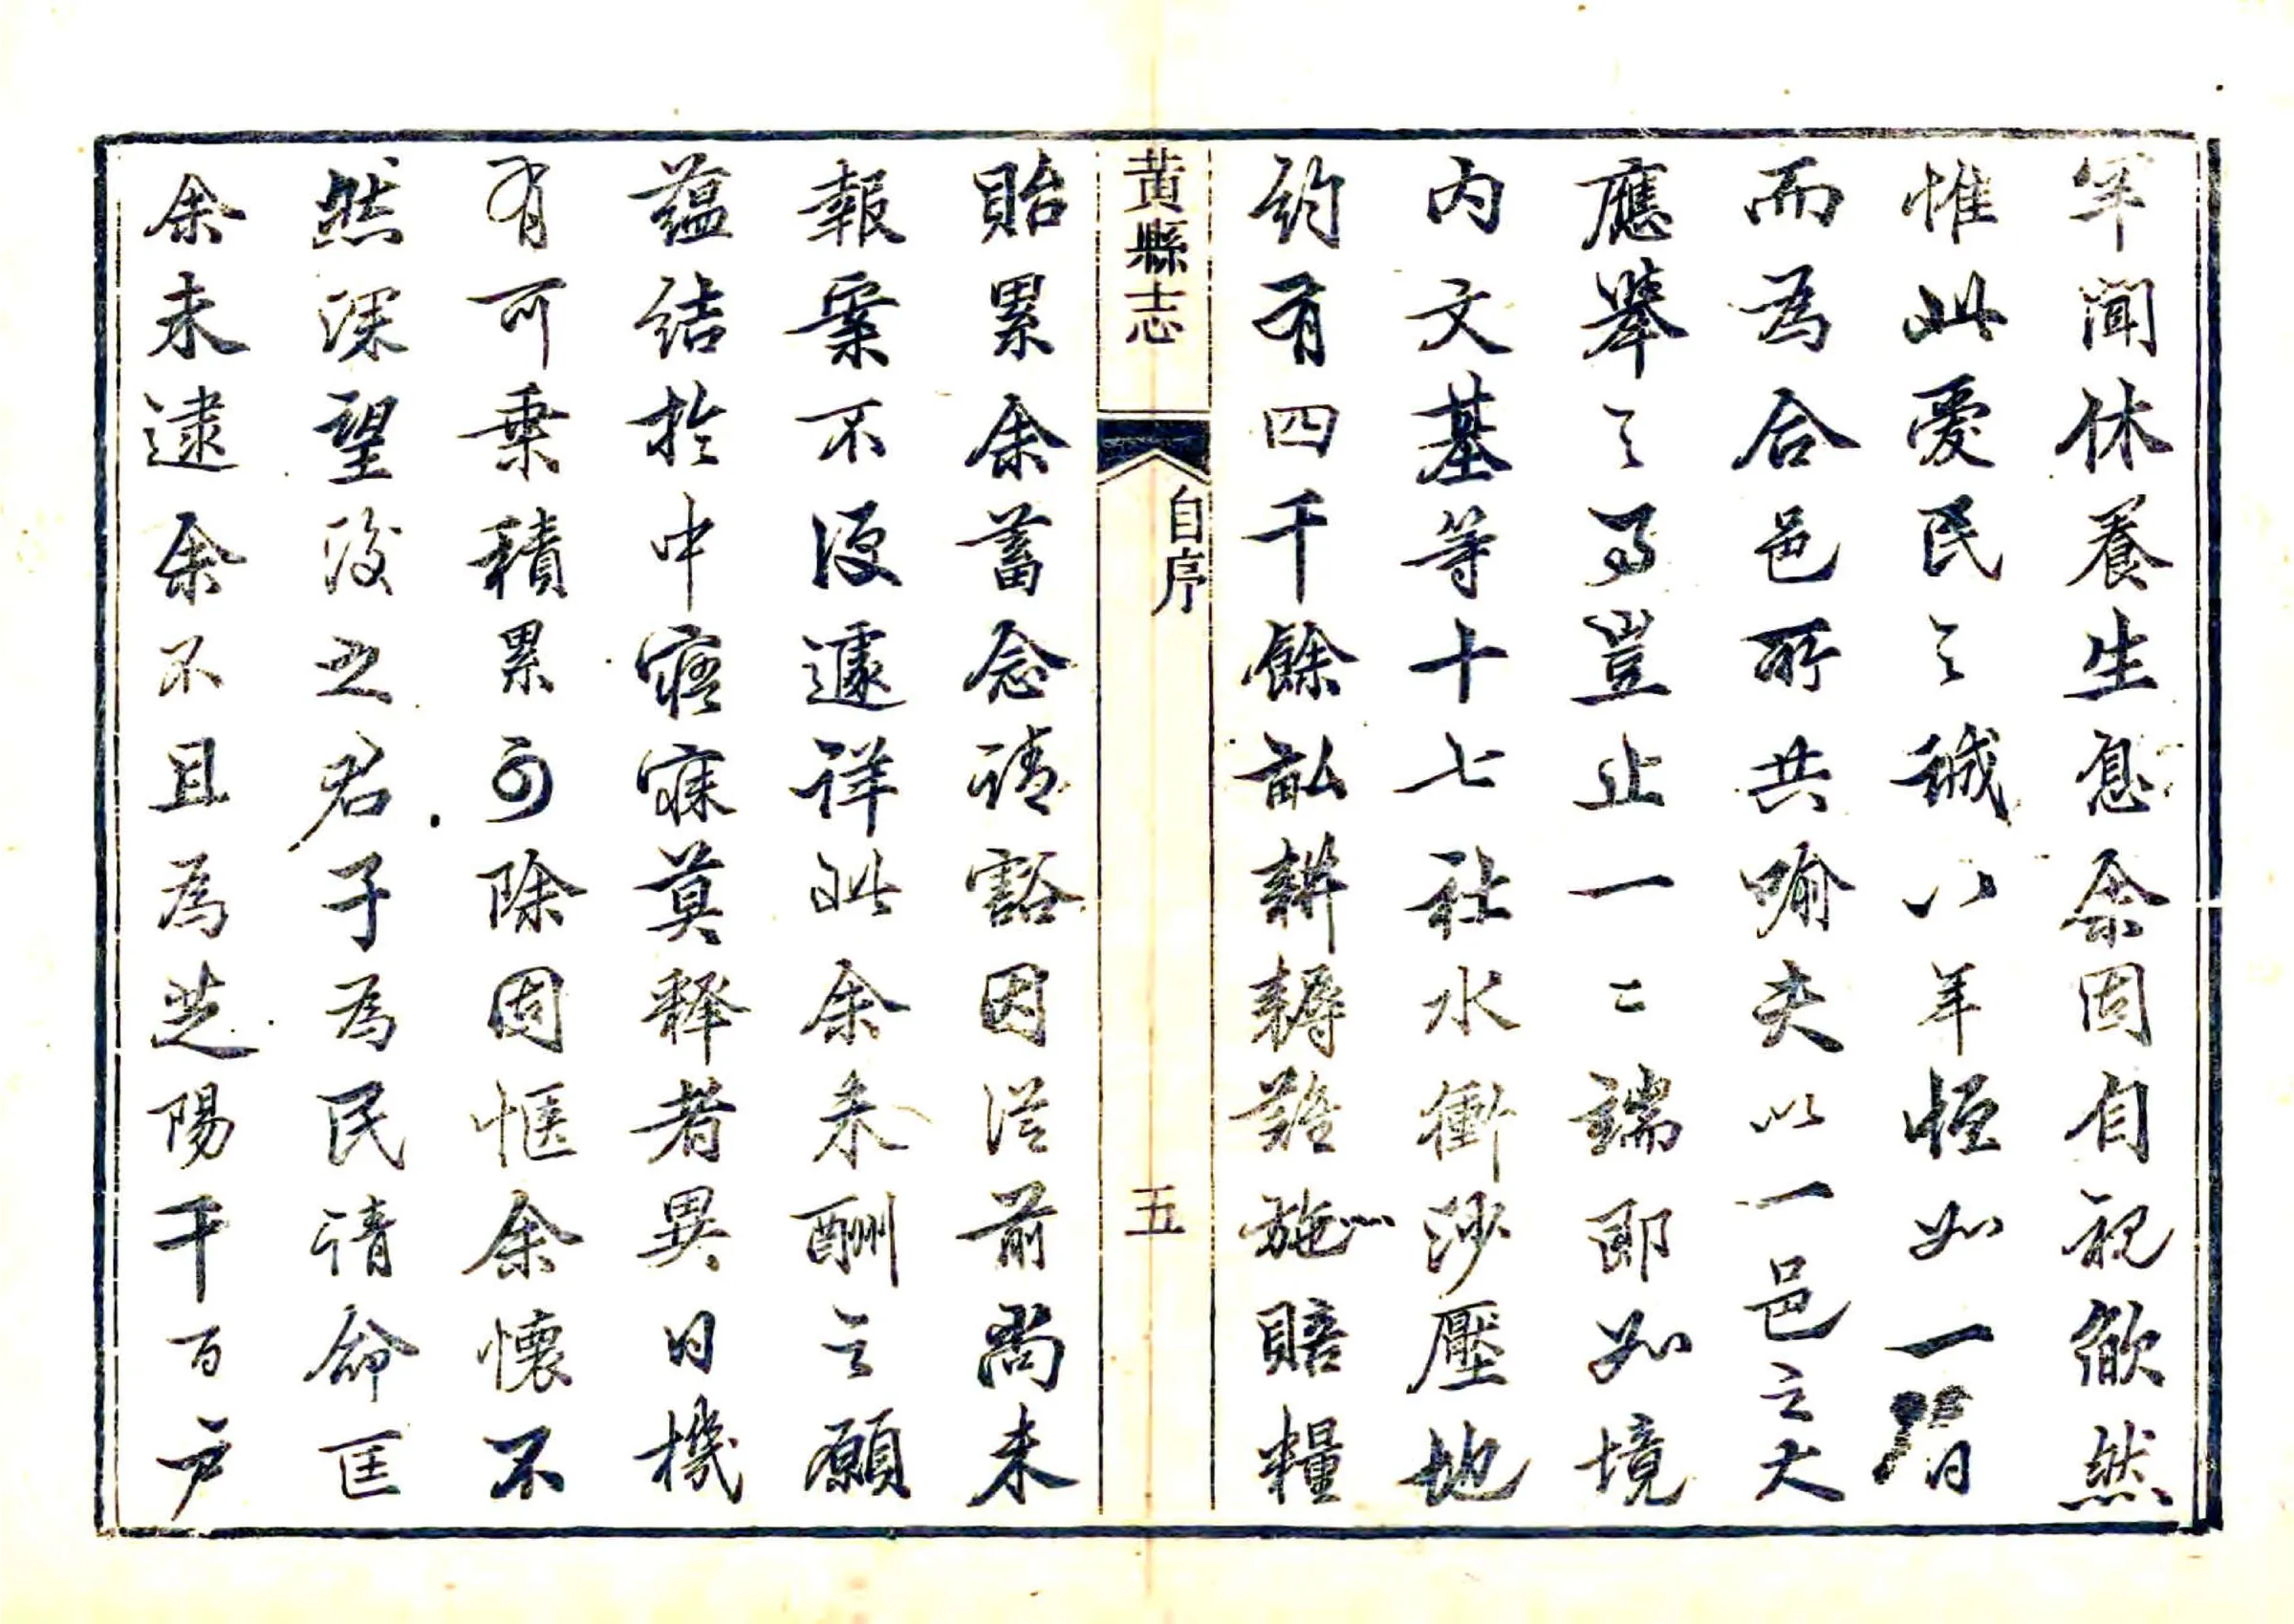 年間休養生息余固自視欿然
惟此愛民之誠八年恒如一日
而為合邑所共喻夫以一邑之大
應舉之事豈止一二端即如境
內文基等十七社水衝沙壓地
約有四千餘畝耕耨難施賠糧
黃縣志
自序
五
貽累余蓄念請豁因從前尚未
報案不便遽詳此余未酬之願
蘊結於中寤寐莫釋者異日機
有可乘積累可除固愜余懷不
然深望後之君子為民請命匡
余未逮余不且為芝陽千百戶